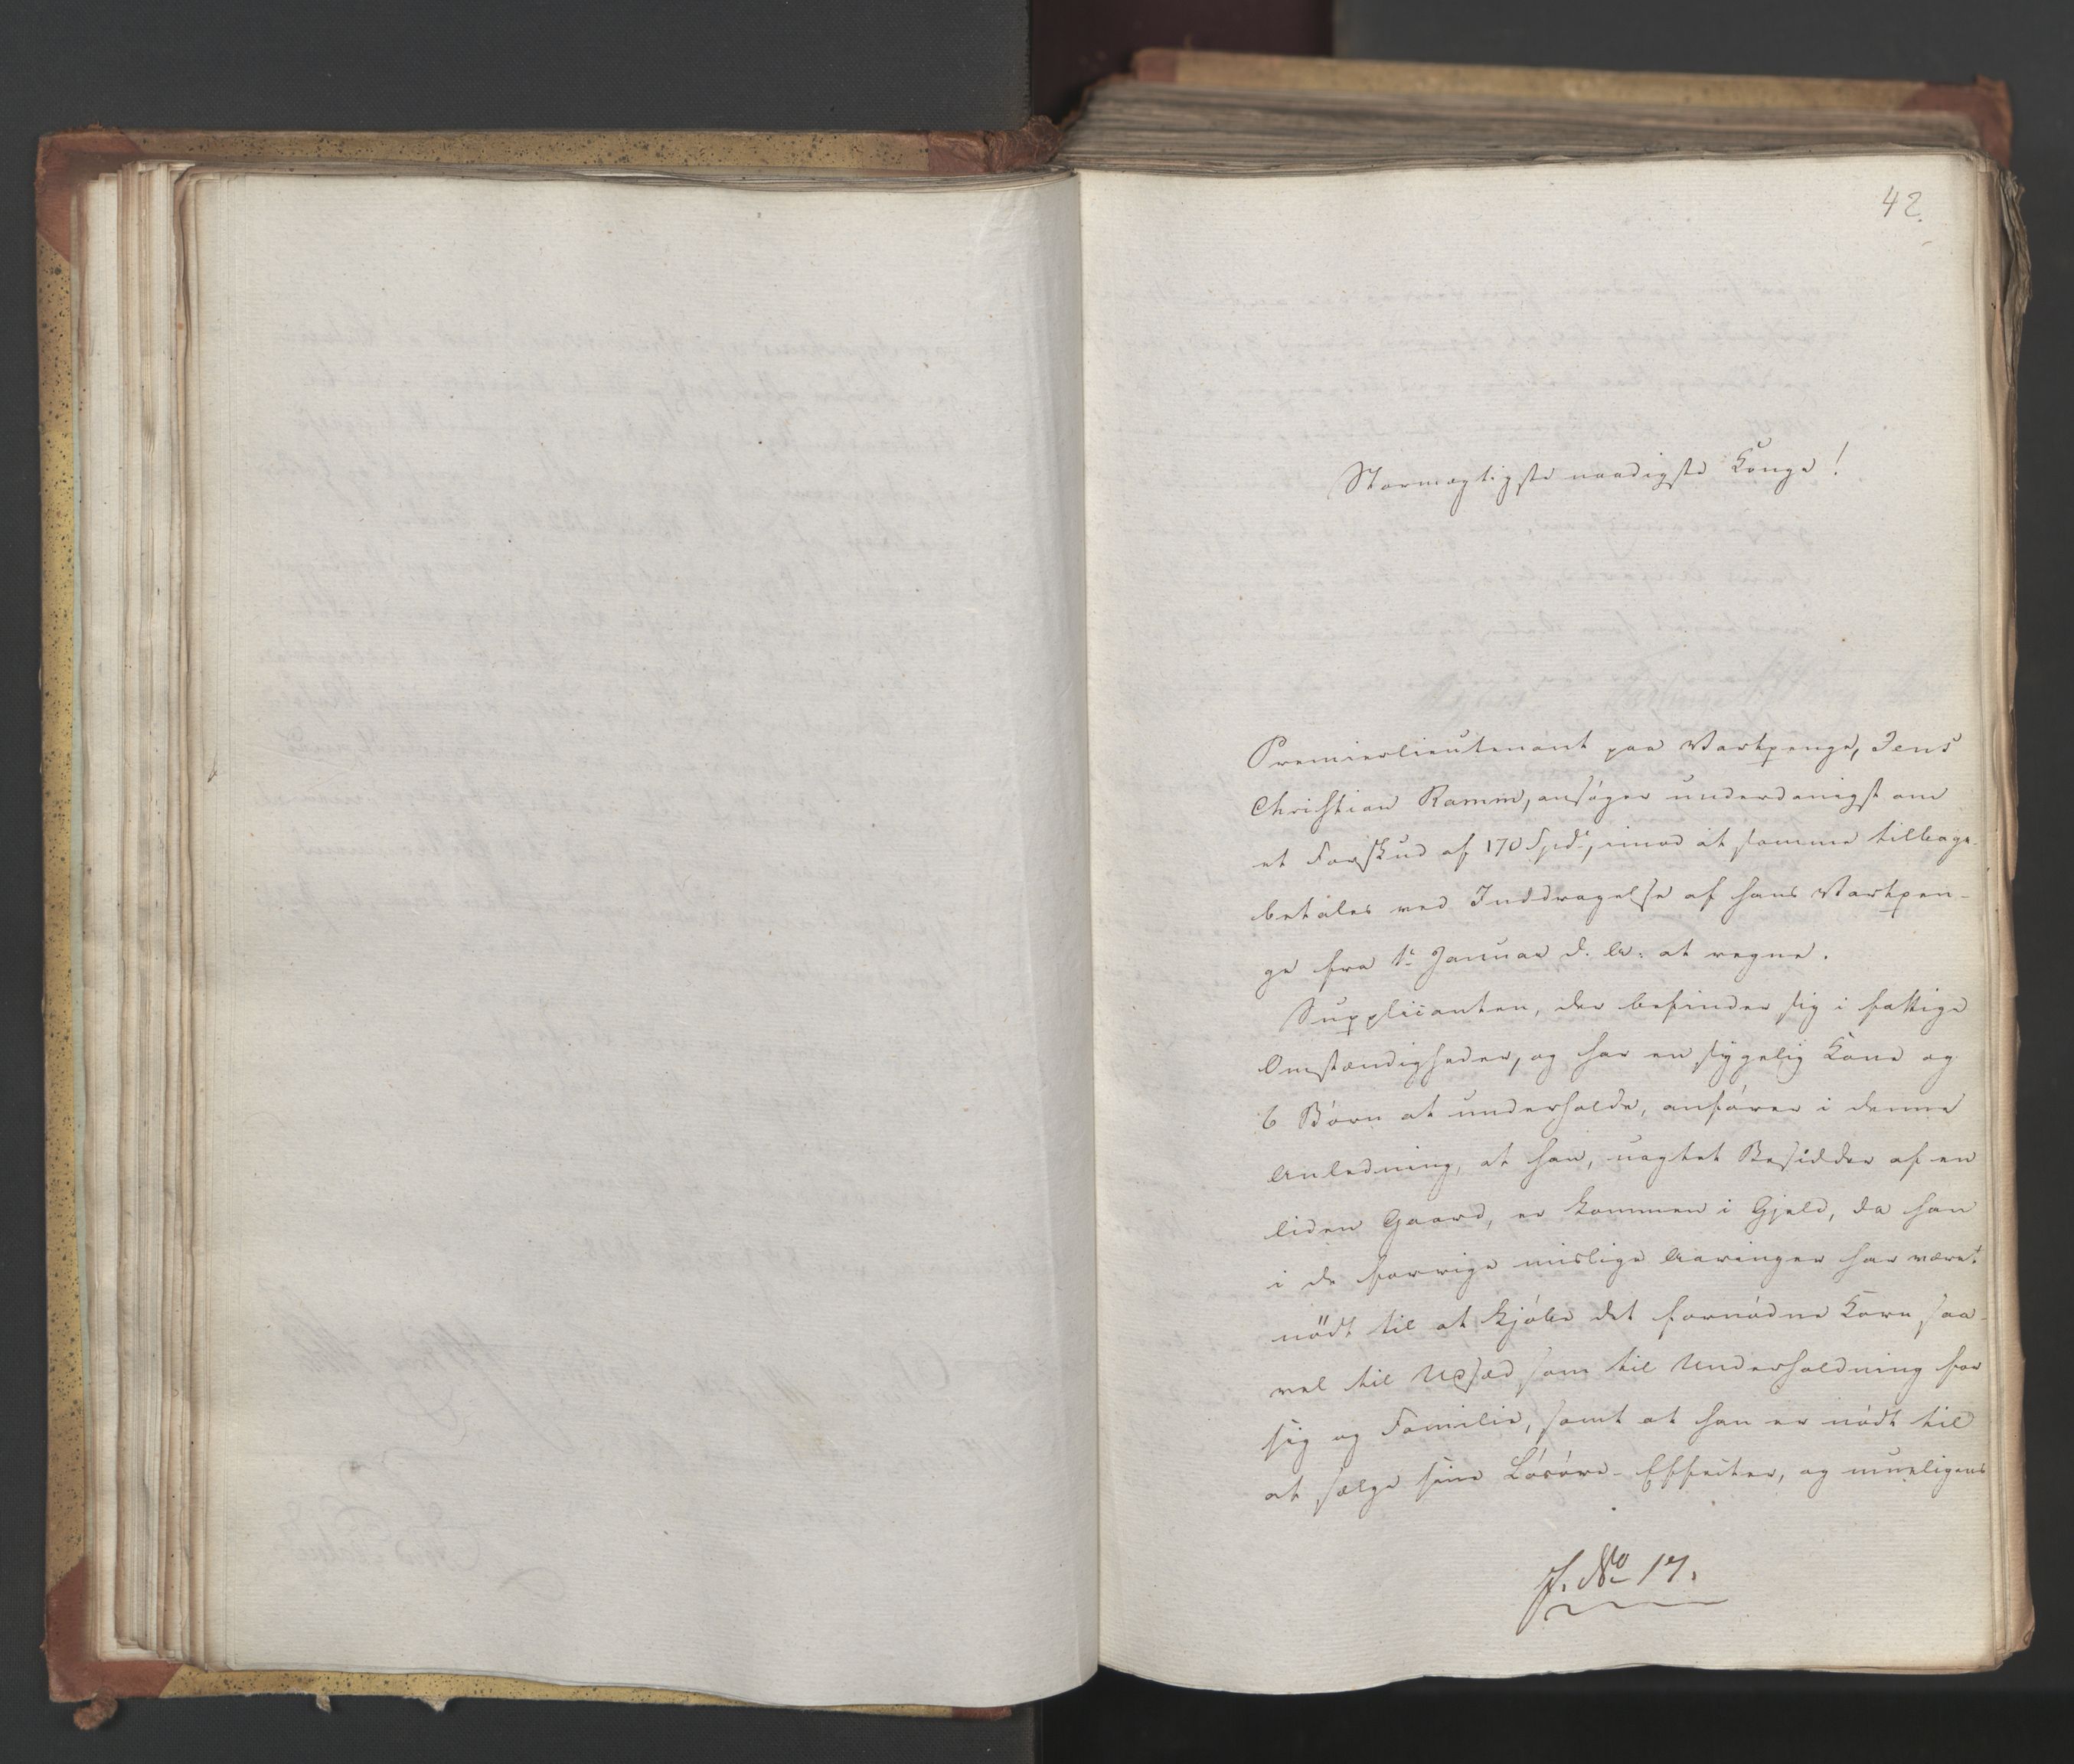 42.
Stormægtigste naadigste Konge!
Premierlieutenant paa Vartpenge, Jens
Christian Ramm, ansøger underdanigst om
et Forskud af 170 Spd., imod at samme tilbage-
betales ved Inddragelse af hans Vartpen-
ge fra 1. Januar d. A. at regne.
Supplicanten, der befinder sig i fattige
Omstændigheder, og har en sygelig Kone og
6 Børn at underholde, anfører i denne
Anledning, at han, uagtet Besidder af en
liden Gaard, er kommen i Gjeld, da han
i de forrige mislige Aaringer har været
nödt til at kjøbe det fornødne Korn saa-
vel til Udsæd som til Underholdning for
sig og Familie, samt at han er nødt til
at sælge sine Løsøre-Effecter, og mueligens
No 17.